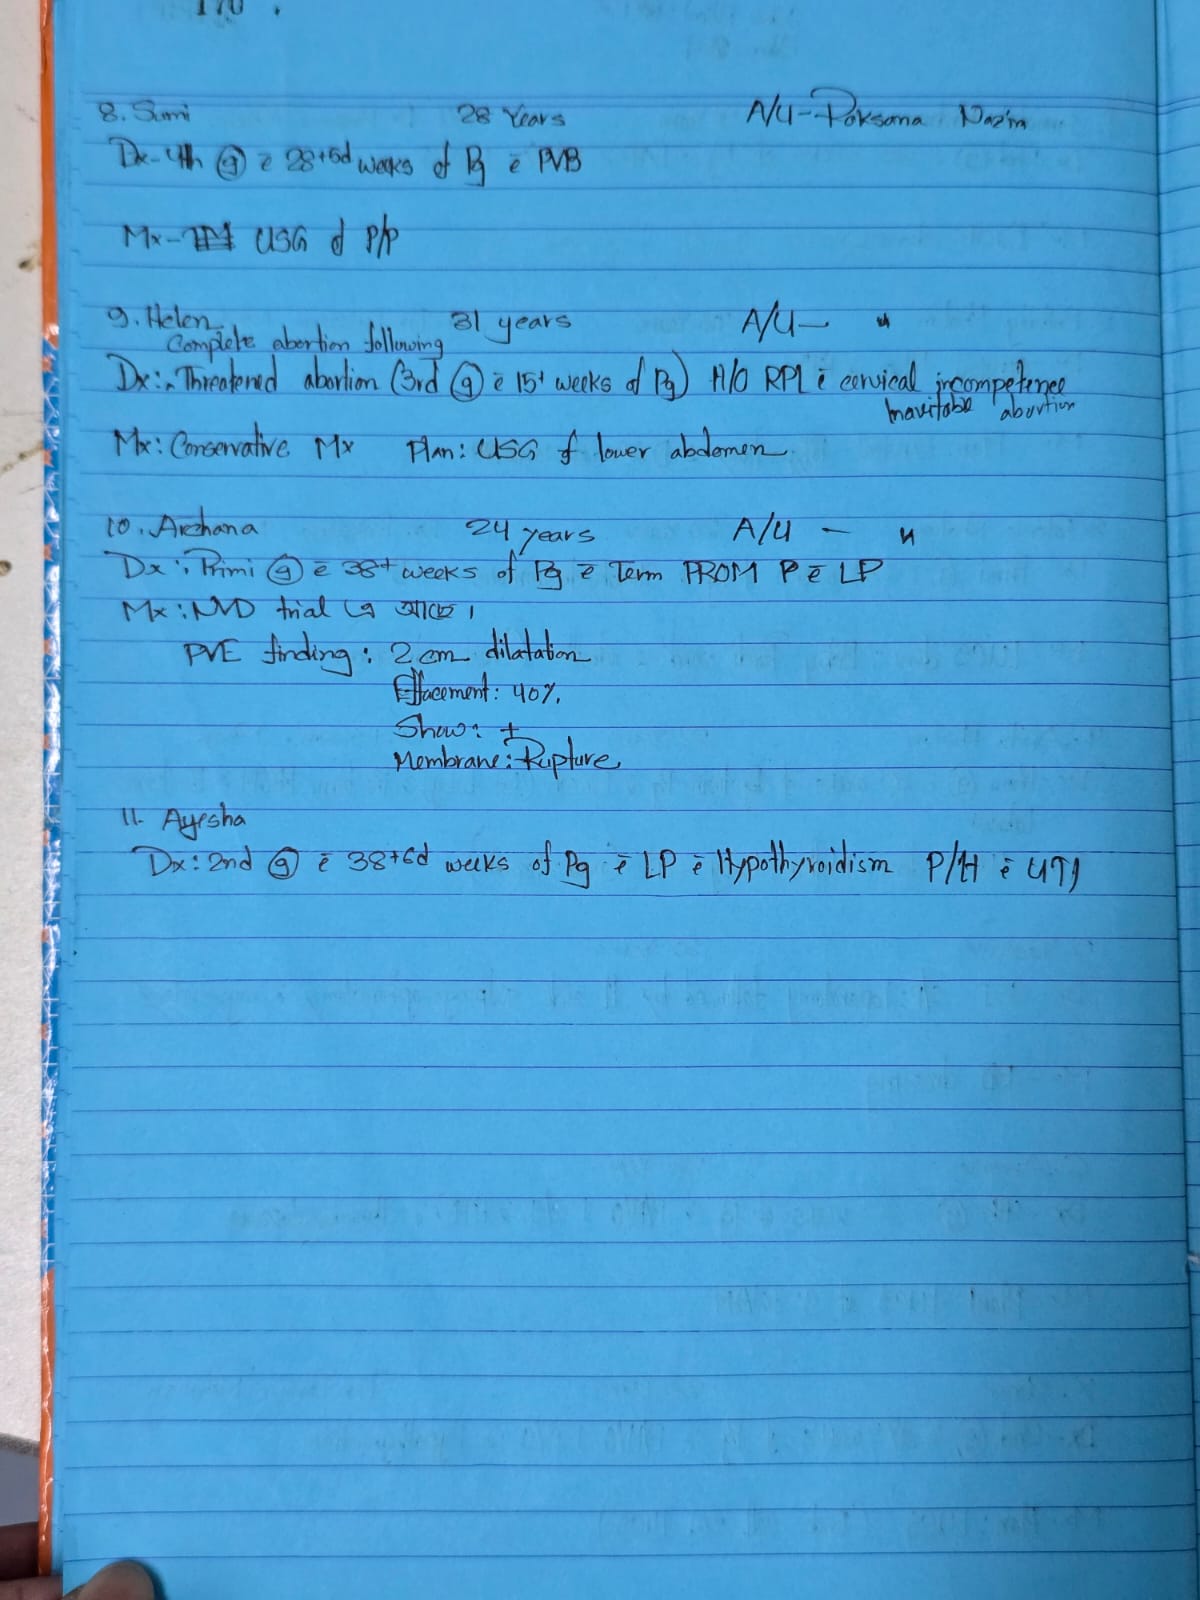 170.
8. Sumi 28 Years A/U- Roksana Nazim
Dx- 4th (g) c̄ 28+5d weeks of Pg c̄ PVB
Mx- USG of P/P
9. Helen 31 years A/U- "
Complete abortion following
Dx: Threatened abortion (3rd (g) c̄ 15+ weeks of Pg) H/O RPL c̄ cervical incompetence
Inevitable abortion
Mx: Conservative Mx Plan: USG of lower abdomen
10. Archana 24 years A/U - "
Dx: Primi (g) c̄ 38+ weeks of Pg c̄ Term PROM P c̄ LP
Mx: NVD trial এ আছে।
PVE finding: 2 cm dilatation
Effacement: 40%.
Show: +
Membrane: Rupture
11. Ayesha
Dx: 2nd (g) c̄ 38+6d weeks of Pg c̄ LP c̄ Hypothyroidism P/H c̄ UTI